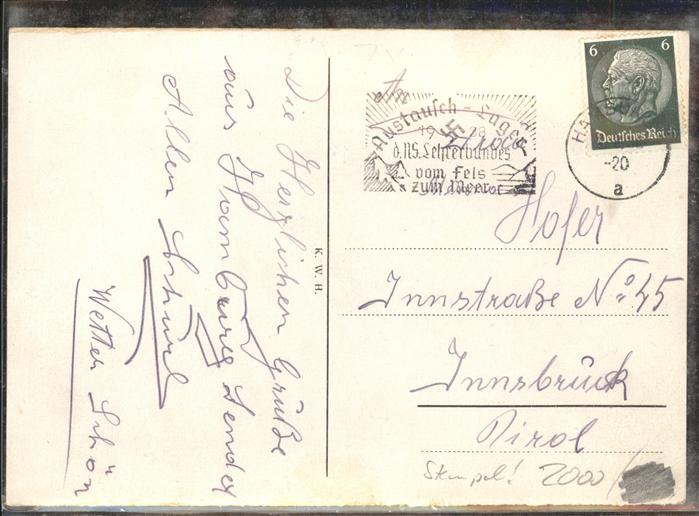 Die Herzlichen Grüße
aus Hamburg sendet
Allen Arthur
Wetter Schön
K. W. H.
An
Austausch-Lager
19 38
d. NS. Lehrerbundes
vom Fels
zum Meer
6 6
Deutsches Reich
HA
-20
a
Hofer
Innstraße No 45
Innsbruck
Tirol
Stempel! 2000